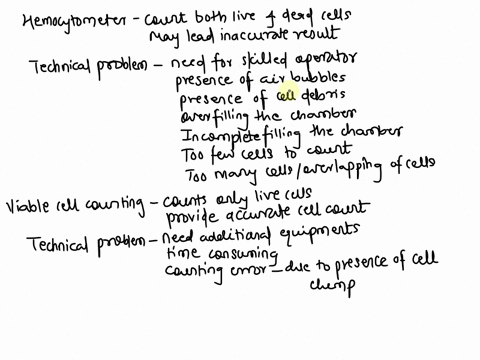 Hemocytometer - count both live & dead cells
may lead inaccurate result
Technical problem - need for skilled operator
presence of air bubbles
presence of cell debris
overfilling the chamber
Incomplete filling the chamber
Too few cells to count
Too many cells/overlapping of cells
Viable cell counting - counts only live cells
provide accurate cell count
Technical problem - need additional equipments
time consuming
counting error - due to presence of cell
clump